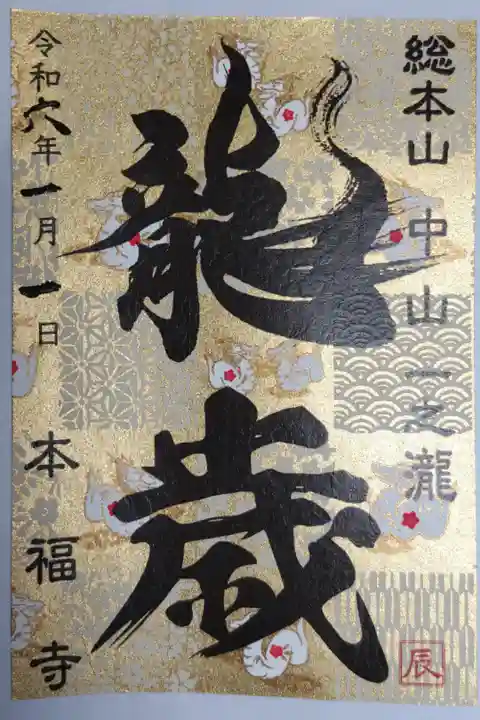 総本山 中山 一之瀧
龍歳
令和六年一月一日 本福寺
辰